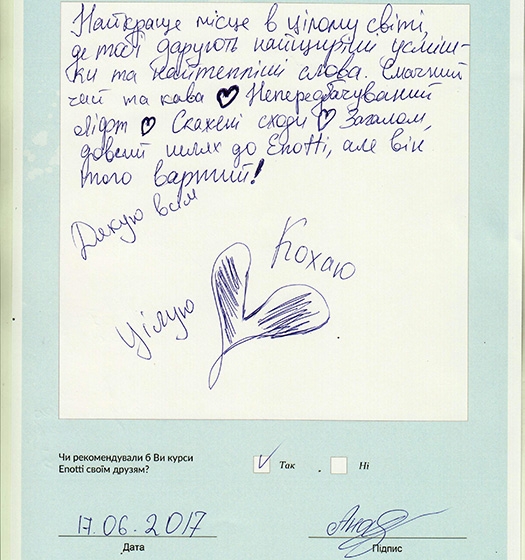 Найкраще місце в цілому світі,
де тобі дарують найщиріші усміш-
ки та найтепліші слова. Смачний
чай та кава ♥ Непередбачуваний
ліфт ♥ Скажені сходи ♥ Загалом,
довгий шлях до Enotti, але він
того вартий!
Дякую всім
Кохаю
Цілую
Чи рекомендували б Ви курси
Enotti своїм друзям?
✓ Так
Ні
17.06.2017
Дата
Підпис